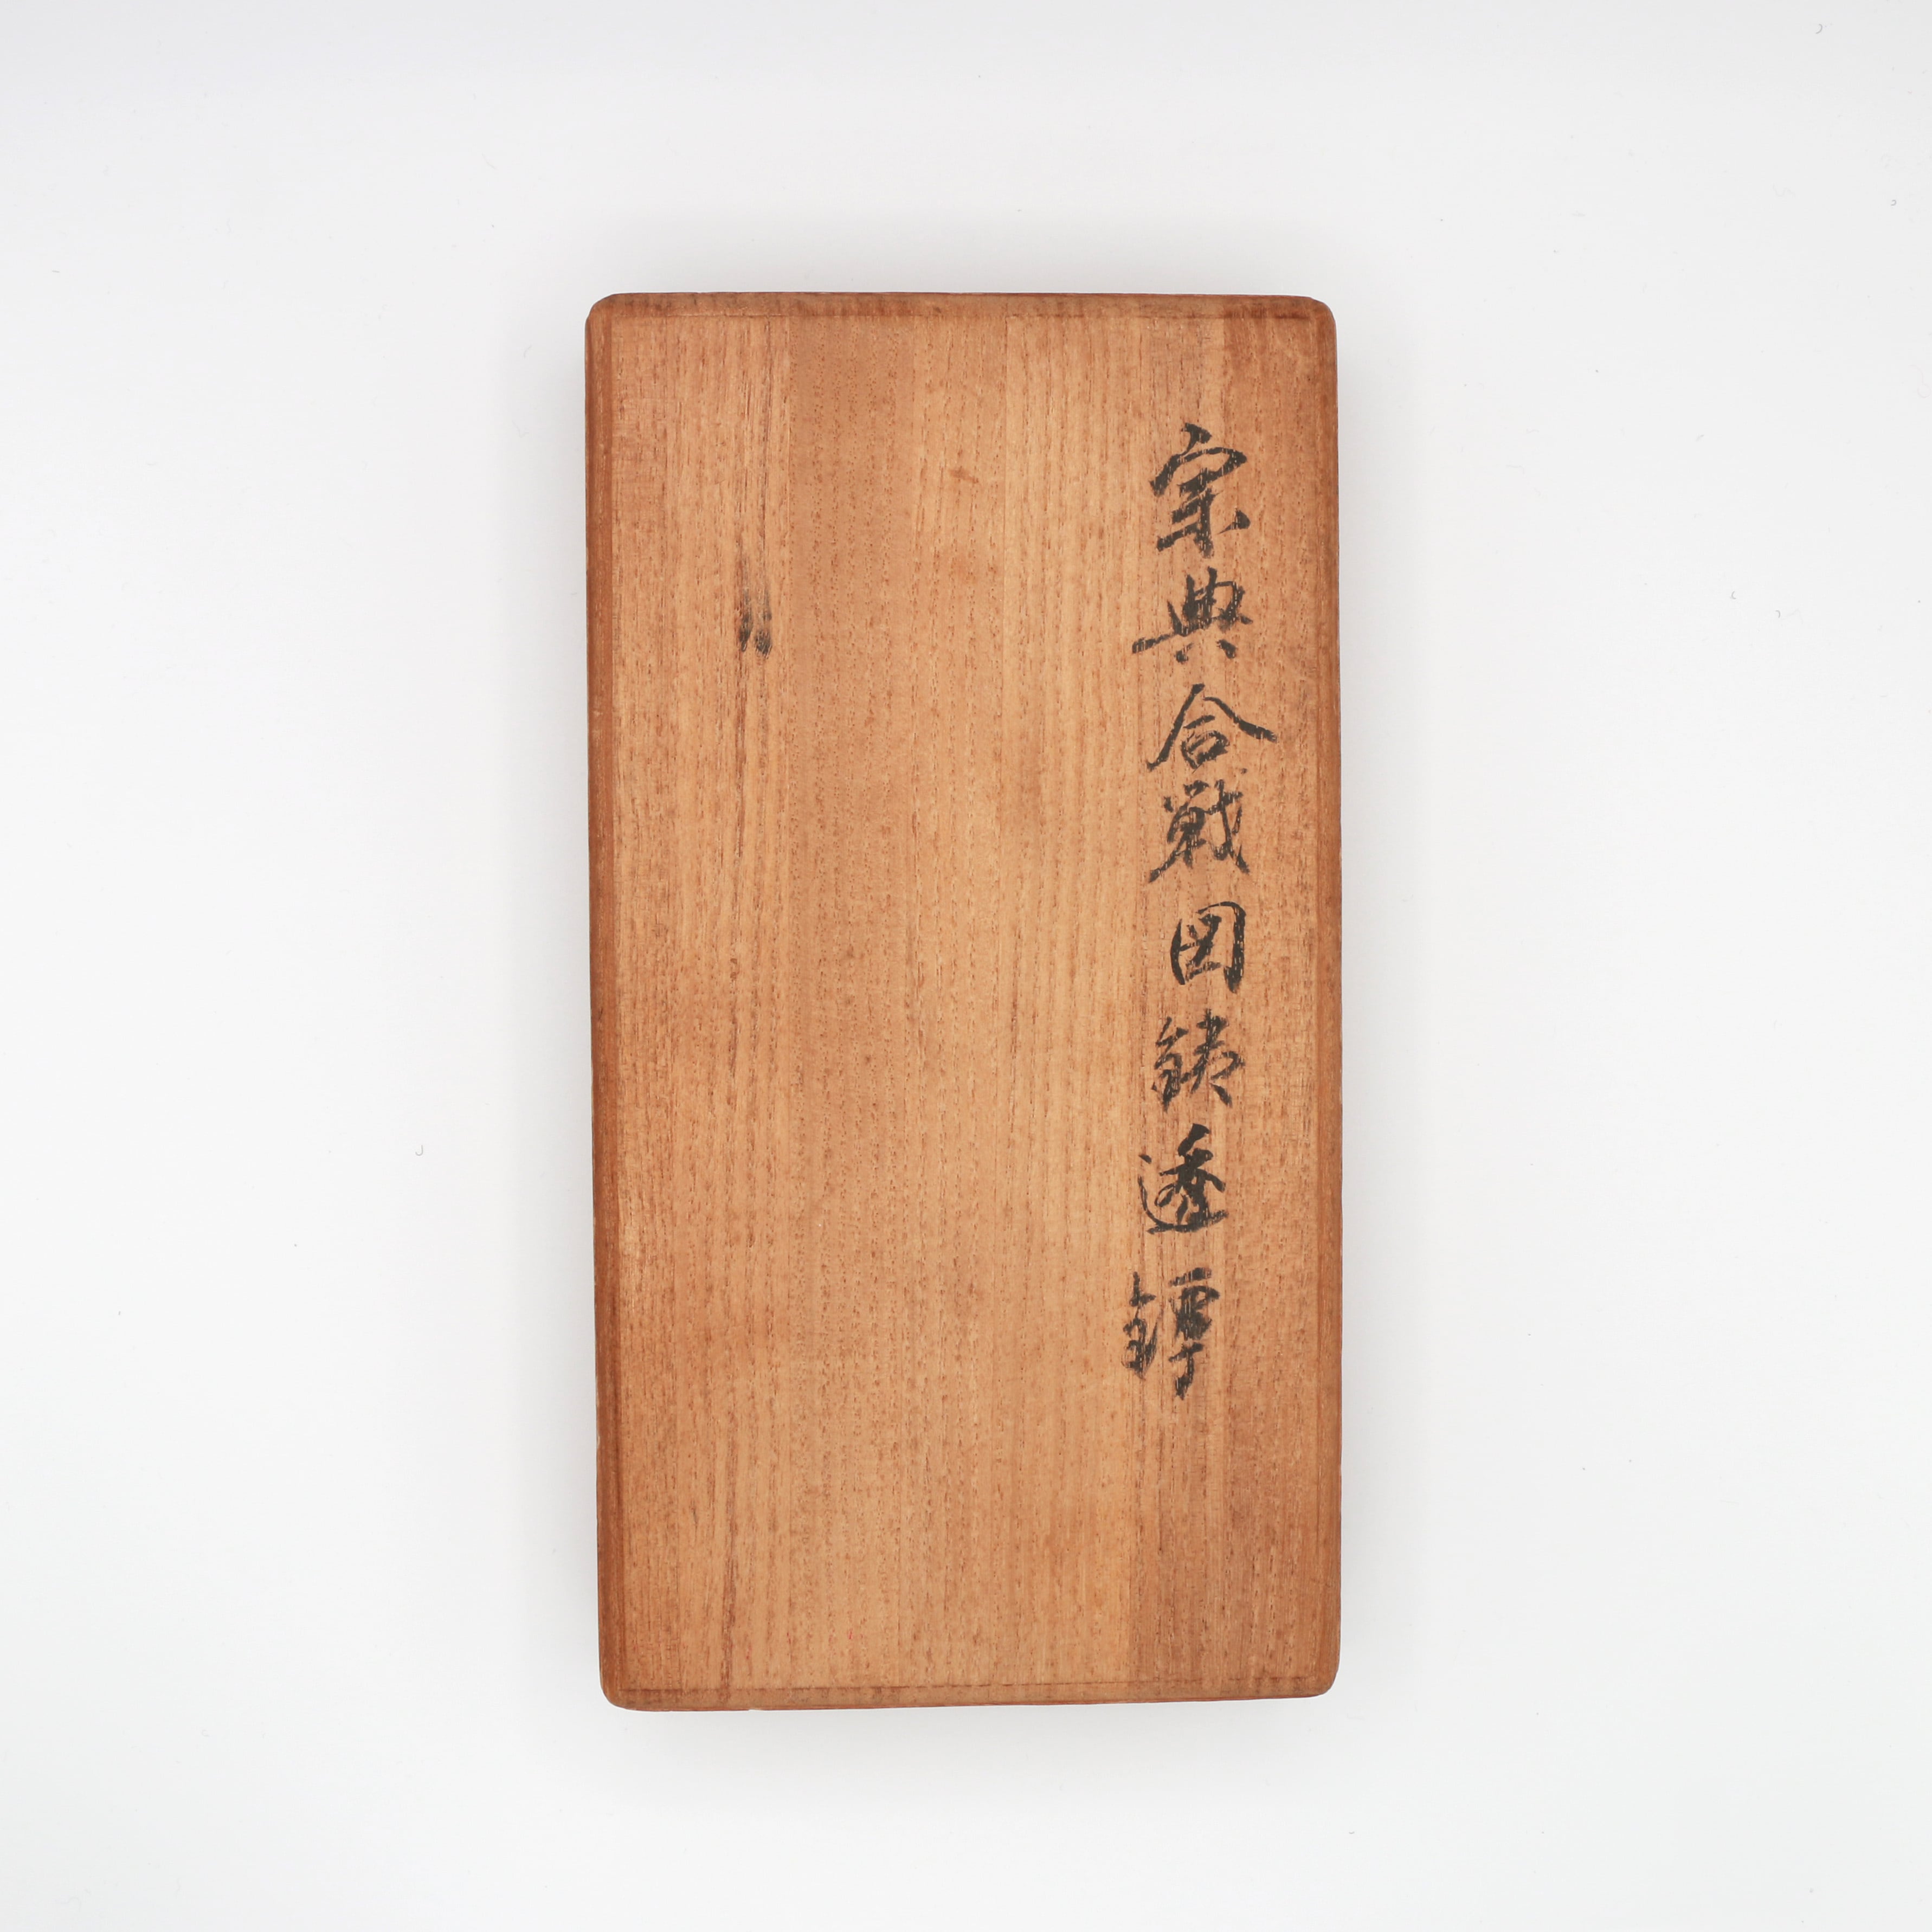 宗典合戦図銕透鐔